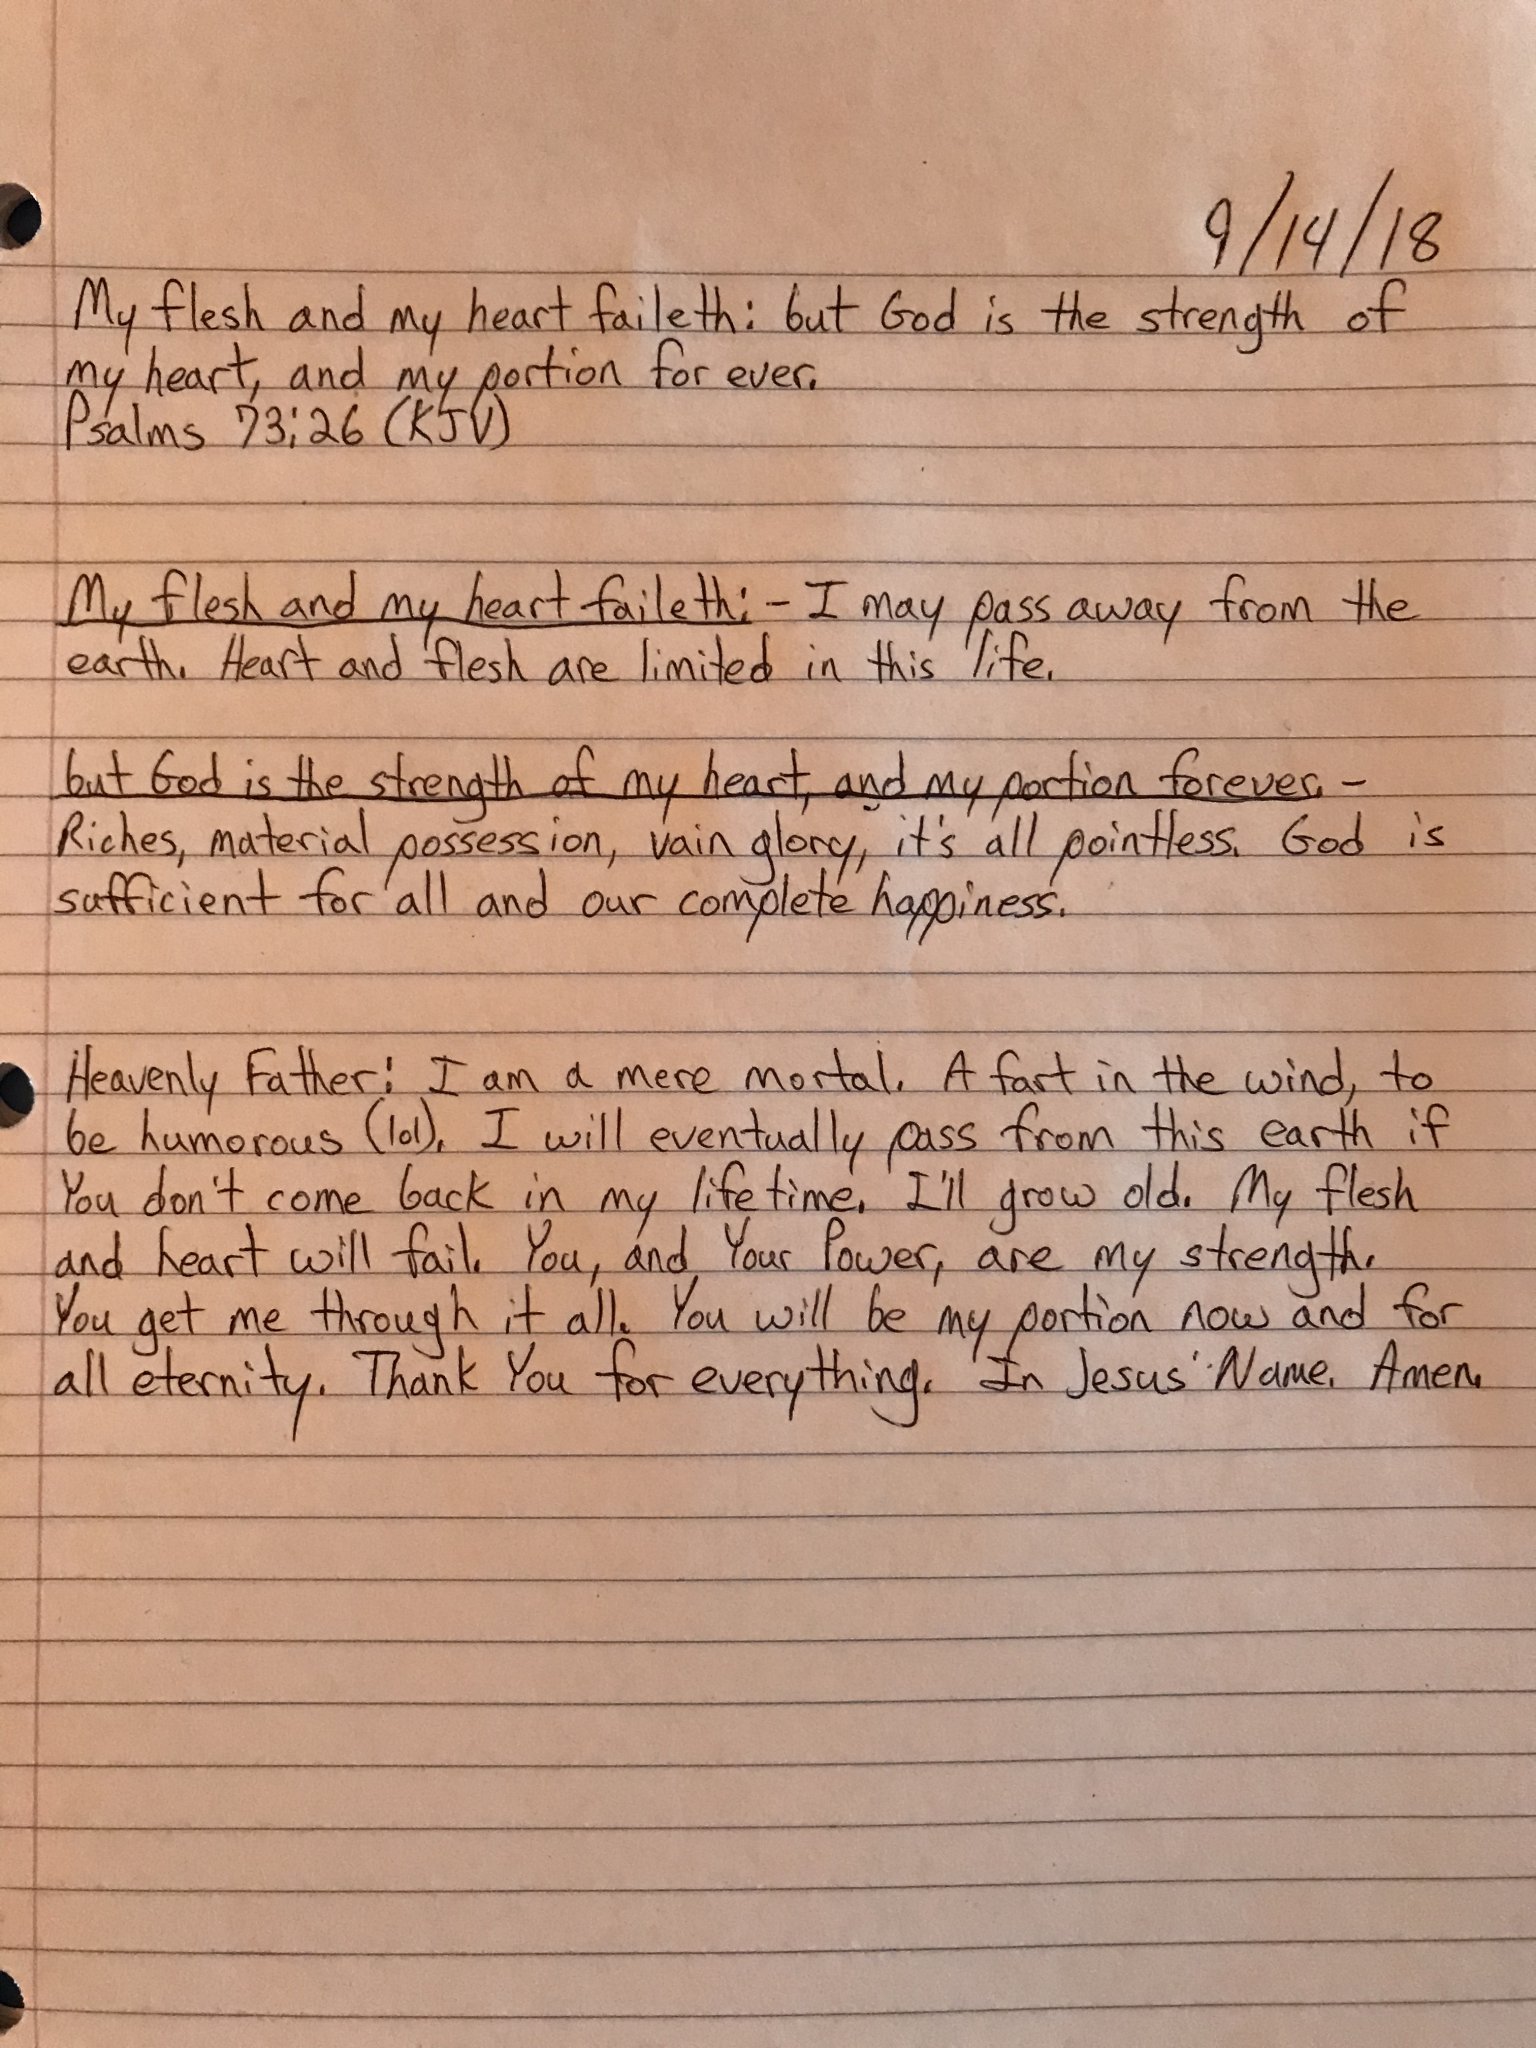 9/14/18
My flesh and my heart faileth: but God is the strength of
my heart, and my portion for ever.
Psalms 73:26 (KJV)
My flesh and my heart faileth: - I may pass away from the
earth. Heart and flesh are limited in this life.
but God is the strength of my heart, and my portion forever. -
Riches, material possession, vain glory, it's all pointless. God is
sufficient for all and our complete happiness.
Heavenly Father: I am a mere mortal. A fart in the wind, to
be humorous (lol). I will eventually pass from this earth if
You don't come back in my lifetime. I'll grow old. My flesh
and heart will fail. You, and Your Power, are my strength.
You get me through it all. You will be my portion now and for
all eternity. Thank You for everything. In Jesus' Name. Amen.